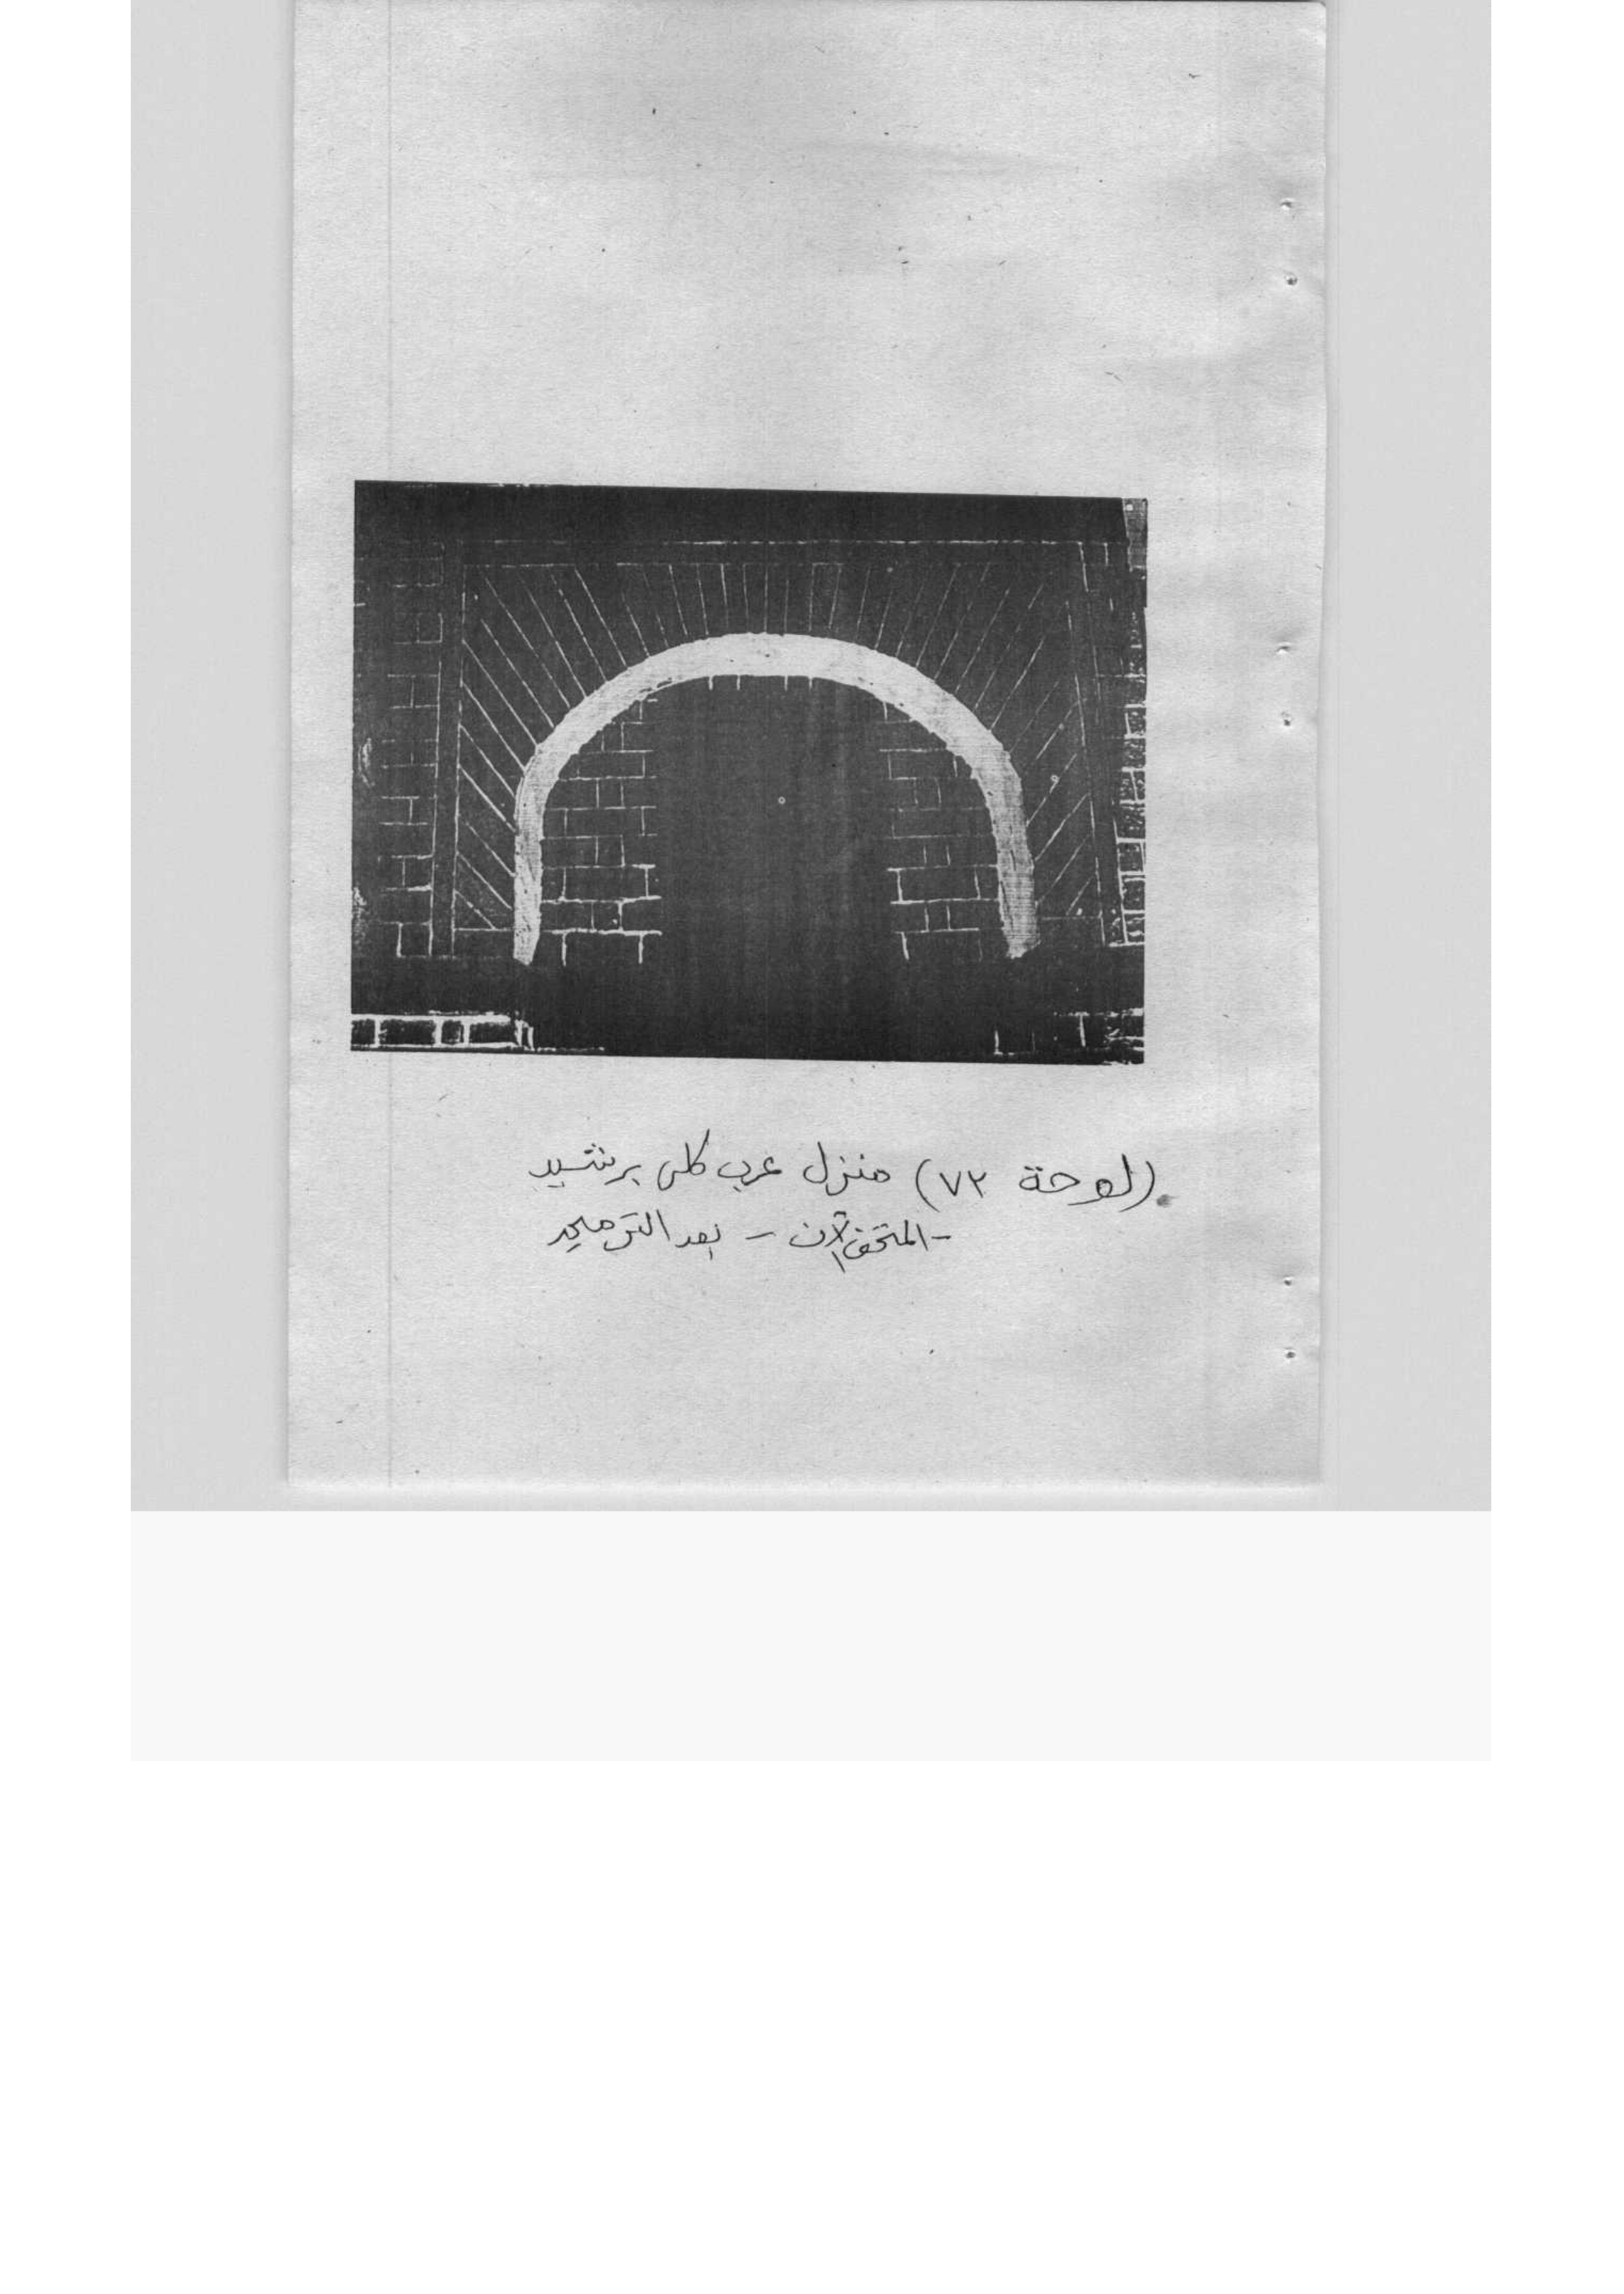 (لوحة ٧٢) منزل عرب كلى برشيد
- المتحف الآن - بعد الترميم